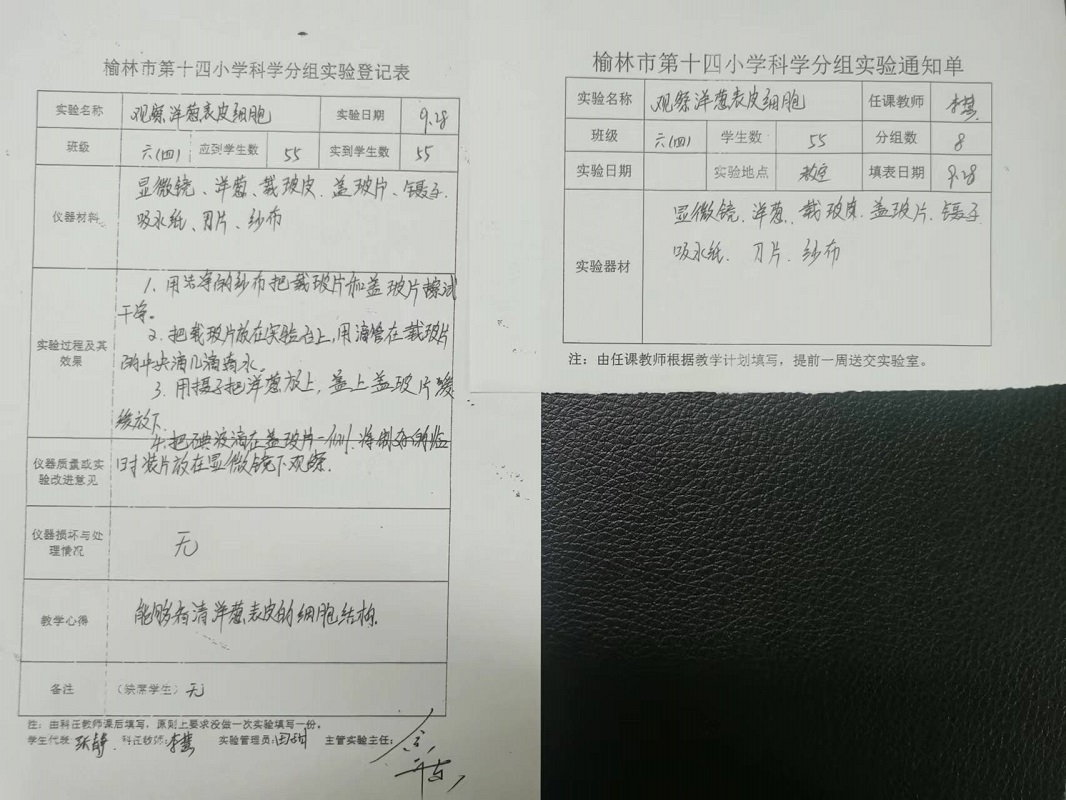 榆林市第十四小学科学分组实验登记表
实验名称 观察洋葱表皮细胞 实验日期 9.28
班级 六(四) 应到学生数 55 实到学生数 55
仪器材料 显微镜、洋葱、载玻皮、盖玻片、镊子
吸水纸、刀片、纱布
实验过程及其效果
1. 用洁净的纱布把载玻片和盖玻片擦试
干净。
2. 把载玻片放在实验台上,用滴管在载玻片
的中央滴几滴清水。
3. 用摄子把洋葱放上,盖上盖玻片缓
缓放下.
4. 把碘液滴在盖玻片一侧.将制好的临
时装片放在显微镜下观察.
仪器质量或实验改进意见
仪器损坏与处理情况 无
教学心得 能够看清洋葱表皮的细胞结构.
备注 (缺席学生) 无
注:由科任教师课后填写,原则上要求没做一次实验填写一份。
学生代表: 张静. 科任教师: 李慧 实验管理员: 田甜 主管实验主任:
榆林市第十四小学科学分组实验通知单
实验名称 观察洋葱表皮细胞 任课教师 李慧
班级 六(四) 学生数 55 分组数 8
实验日期 实验地点 教室 填表日期 9.28
实验器材 显微镜、洋葱、载玻皮、盖玻片、镊子
吸水纸、刀片、纱布
注:由任课教师根据教学计划填写,提前一周送交实验室。